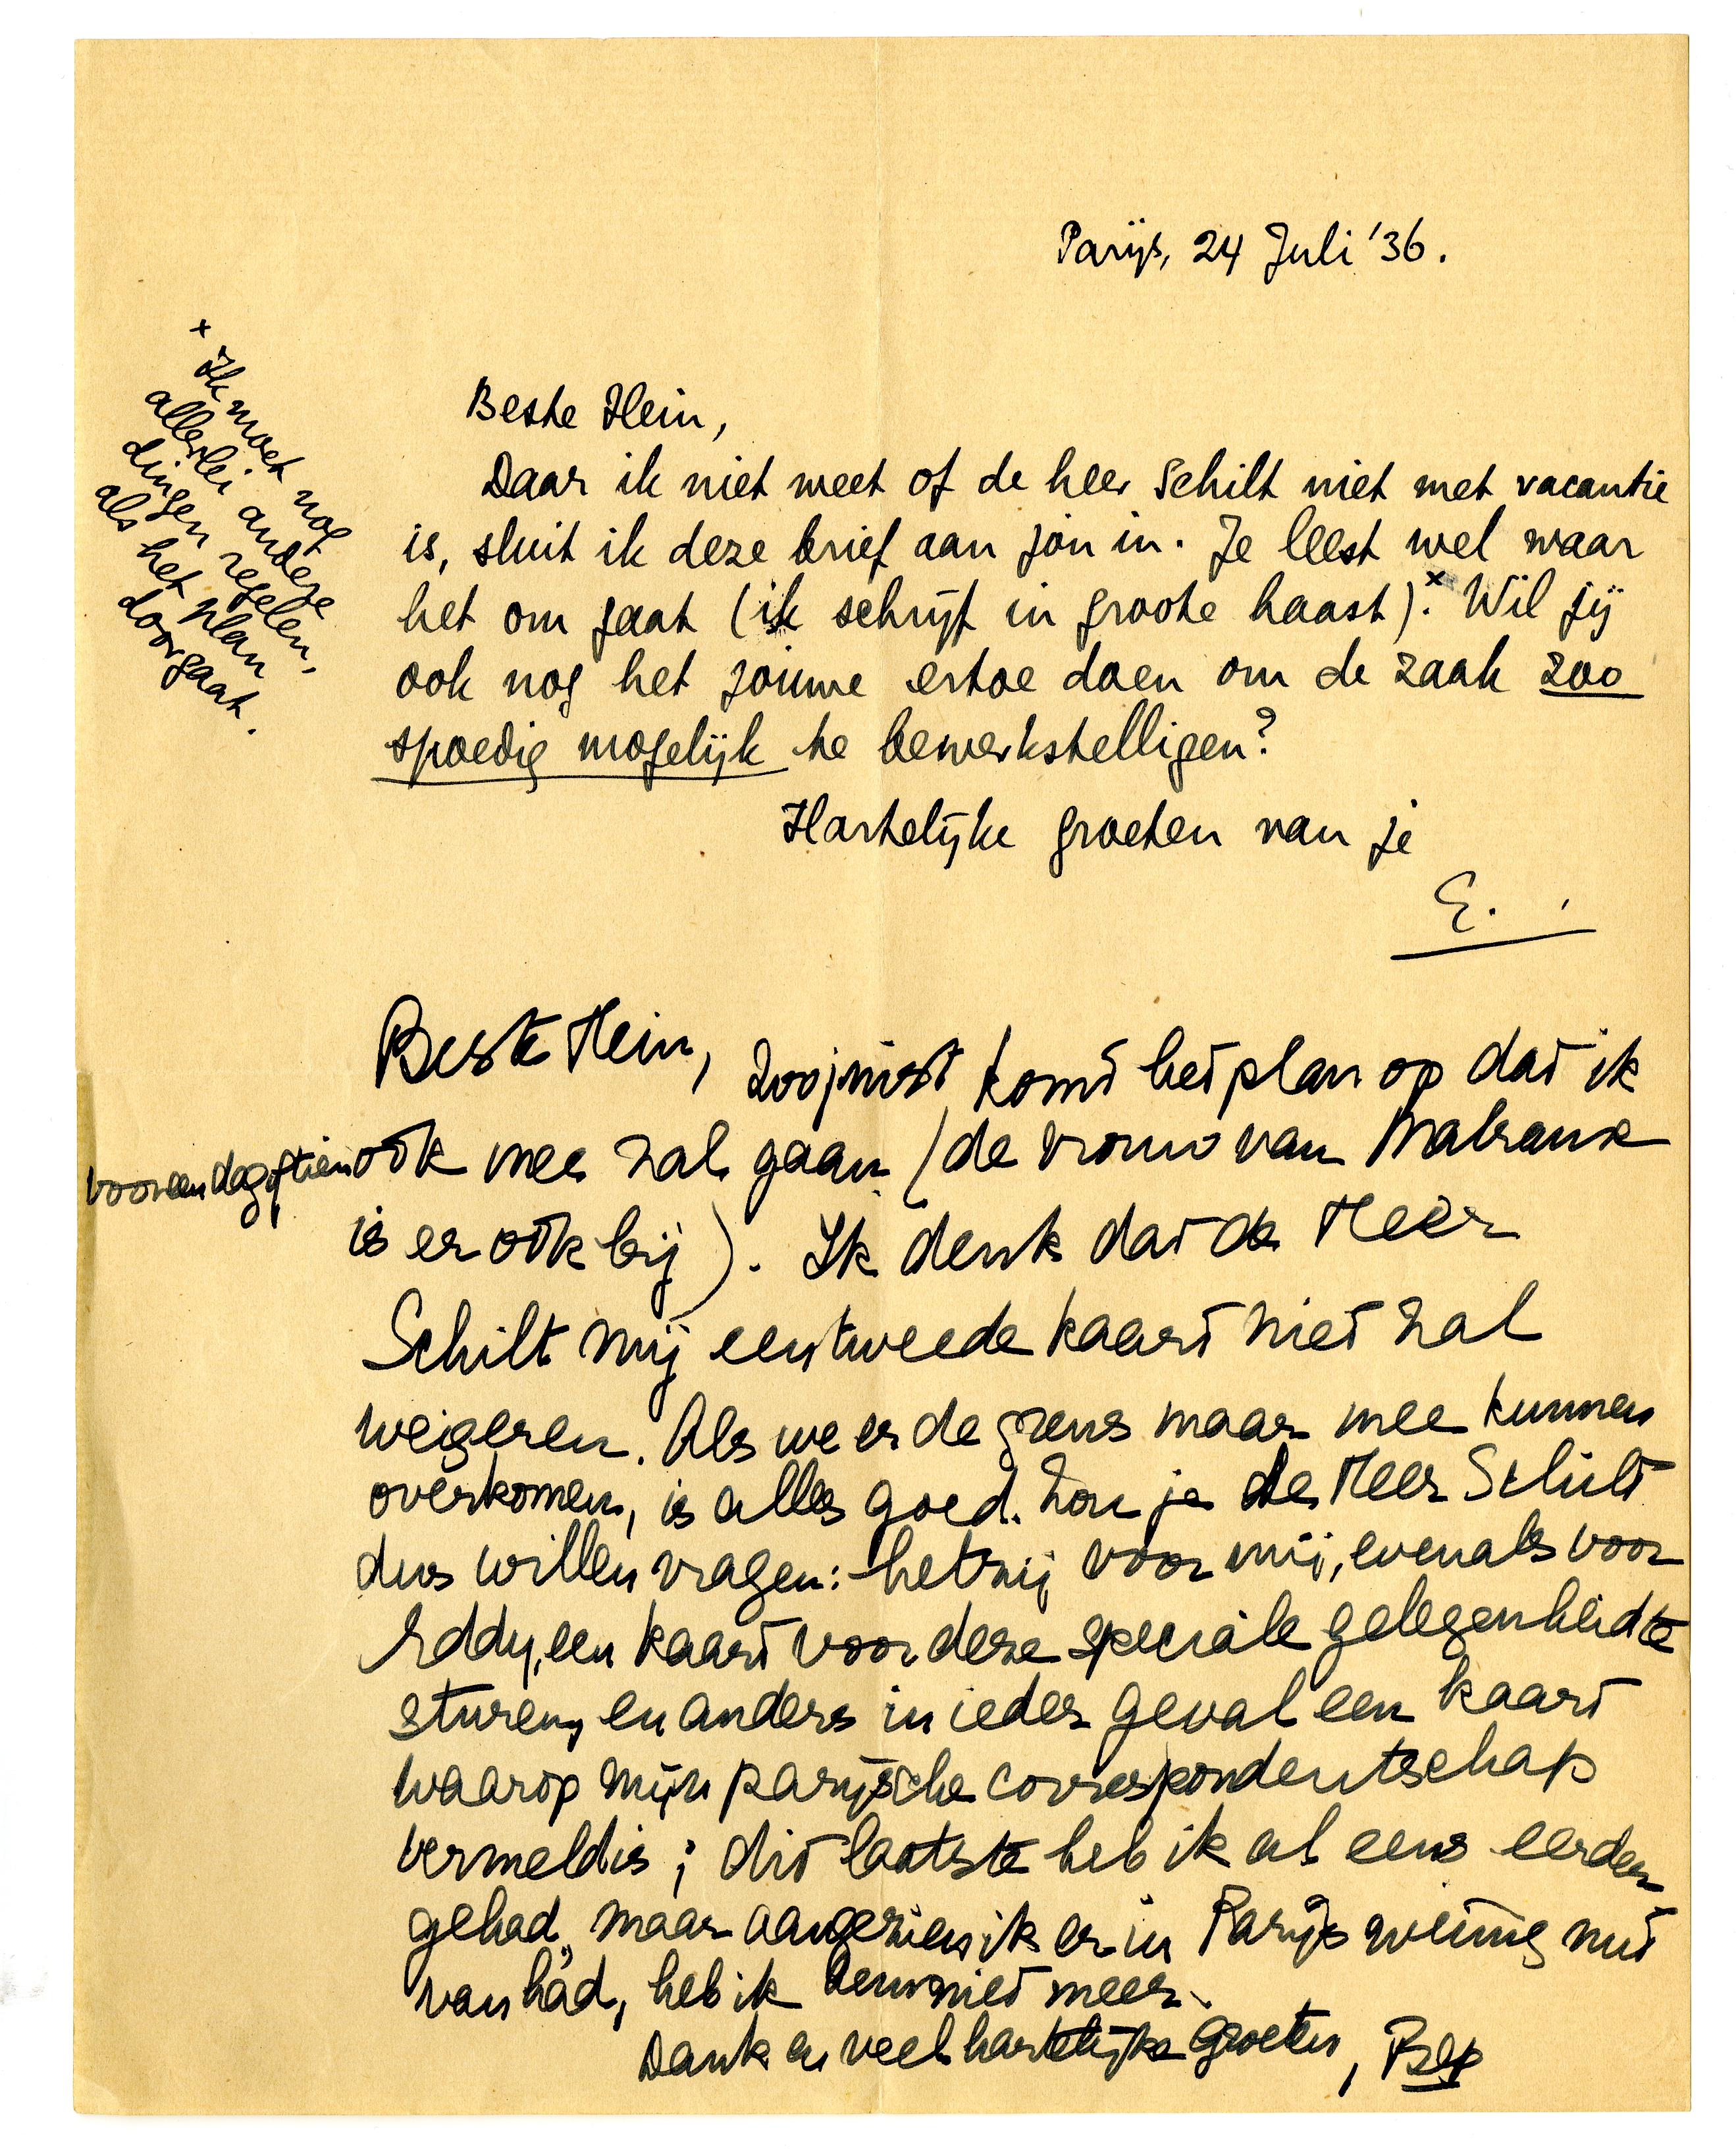 Parijs, 24 Juli '36.
+ Ik moet nog
allerlei andere
dingen regelen,
als het plan
doorgaat.
Beste Hein,
Daar ik niet weet of de heer Schilt niet met vacantie
is, sluit ik deze brief aan jou in. Je leest wel waar
het om gaat (ik schrijf in groote haast).x Wil jij
ook nog het jouwe ertoe doen om de zaak zoo
spoedig mogelijk te bewerkstelligen?
Hartelijke groeten van je
E.
Beste Hein, zoojuist komt het plan op dat ik
voor een dag of tien ook mee zal gaan (de vrouw van Malraux
is er ook bij). Ik denk dat de Heer
Schilt mij een tweede kaart niet zal
weigeren. Als we er de grens maar mee kunnen
overkomen, is alles goed. Zou je de Heer Schilt
dus willen vragen: hetzij voor mij, evenals voor
Eddy, een kaart voor deze speciale gelegenheid te
sturen, en anders in ieder geval een kaart
waarop mijn parijsche correspondentschap
vermeld is; dit laatste heb ik al eens eerder
gehad, maar aangezien ik er in Parijs weinig nut
van had, heb ik hem niet meer.
Dank en veel hartelijke groeten, Bep